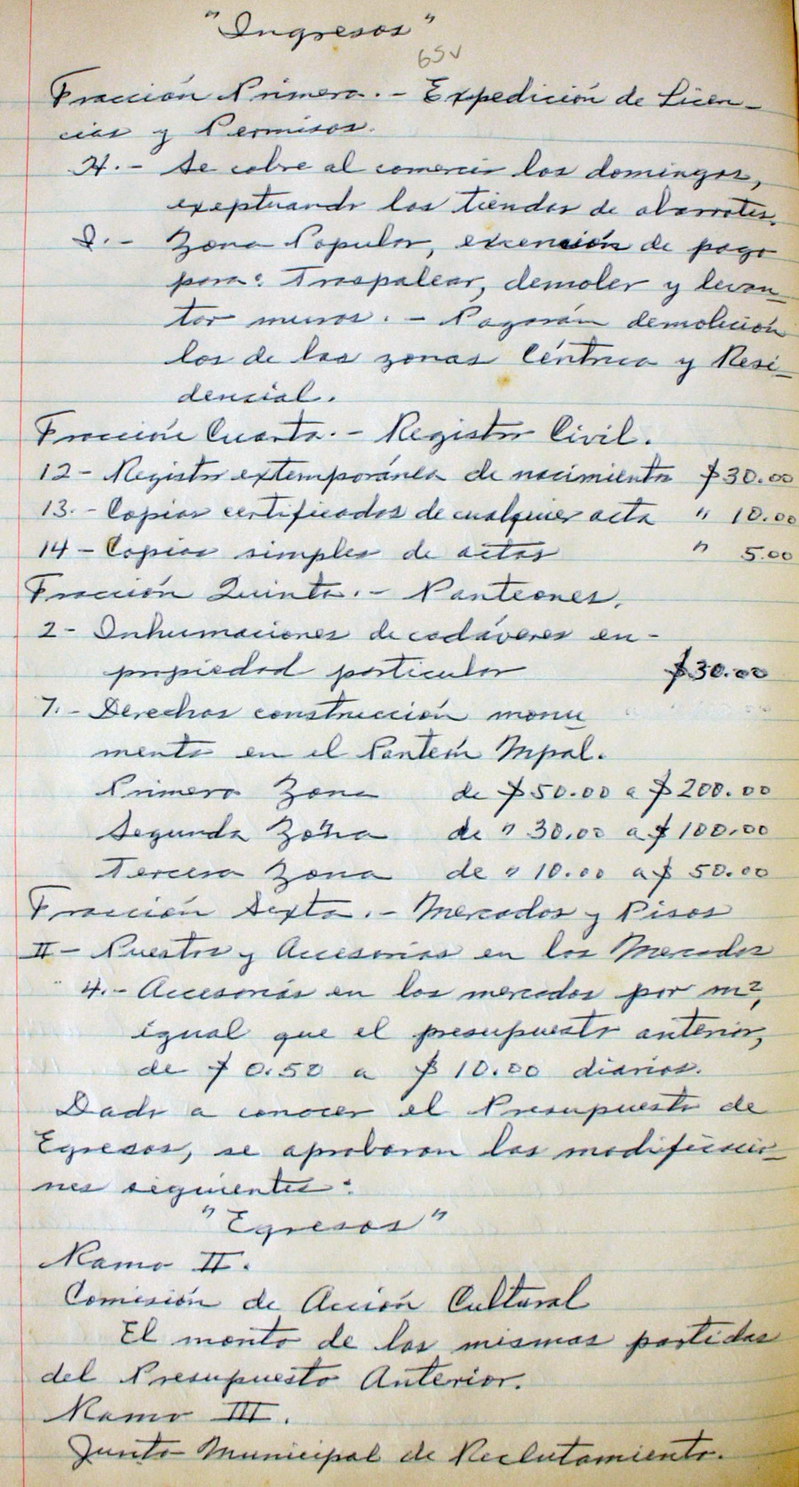 "Ingresos"
65v
Fracción Primera.- Expedición de Licen-
cias y Permisos.
H.- Se cobre al comercio los domingos,
exeptuando las tiendas de abarrotes.
I.- Zona Popular, excención de pago
para: Traspalear, demoler y levan-
tar muros.- Pagarán demolición
los de las zonas Céntrica y Resi-
dencial.
Fracción Cuarta.- Registro Civil.
12- Registro extemporáneo de nacimiento $30.00
13.- Copias certificadas de cualquier acta " 10.00
14- Copias simples de actas " 5.00
Fracción Quinta.- Panteones.
2- Inhumaciones de cadáveres en-
propiedad particular $30.00
7.- Derechos construcción monu
mento en el Panteón Mpal.
Primera Zona de $50.00 a $200.00
Segunda Zona de " 30.00 a $100.00
Tercera Zona de " 10.00 a $ 50.00
Fracción Sexta.- Mercados y Pisos
II- Puestos y Accesorias en los Mercados
4.- Accesorias en los mercados por m²,
igual que el presupuesto anterior,
de $ 0.50 a $ 10.00 diarios.
Dado a conocer el Presupuesto de
Egresos, se aprobaron las modificacio-
nes siguientes:
"Egresos"
Ramo II.
Comisión de Acción Cultural
El monto de las mismas partidas
del Presupuesto Anterior.
Ramo III.
Junta Municipal de Reclutamiento.